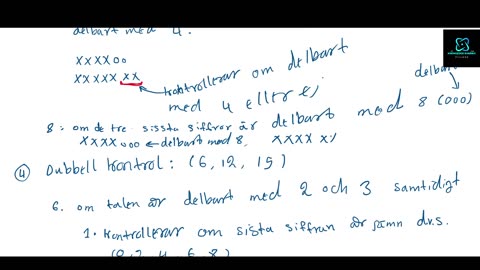 delbart med 4.
XXXXoo
XXXXX XX
kontrollerar om delbart
med 4 eller ej
delbar
8: om de tre sissta siffror är delbart med 8 (000)
XXXX000 ← delbart med 8, XXXX x
④ Dubbell kontrol: (6, 12, 15)
6. om talen är delbart med 2 och 3 samtidigt
1. kontrollerar om sista siffran är jämn dvs.
(0, 2, 4, 6, 8)